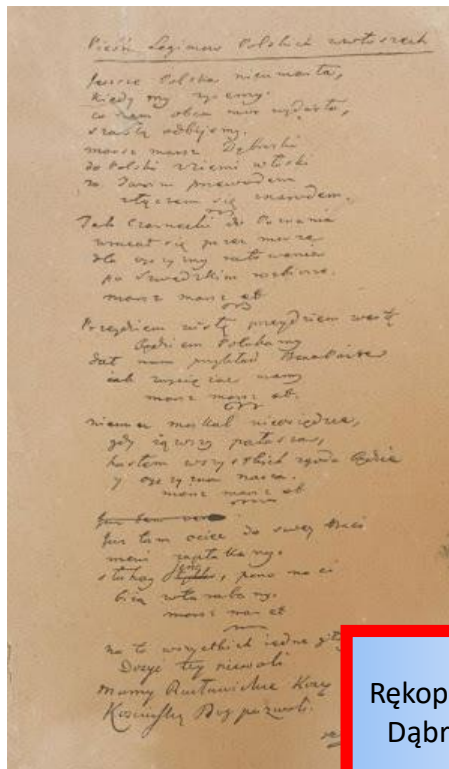 Pieśń Legionow Polskich we włoszech
Jeszcze Polska nie umarła,
kiedy my żyjemy.
co nam obca moc wydarła,
szablą odbijemy.
marsz marsz Dąbroski
do Polski z ziemi włoski
za Twoim przewodem
złączem się z narodem.
Jak Czarnecki do Poznania
wracał się przez morze
dla oyczyzny ratowania
po szwedzkim rozbiorze.
marsz marsz et
Przeydziem wisłę przeydziem wartę
będziem Polakamy
dał nam przykład Bonaparte
iak zwyciężac mamy
marsz marsz et.
niemiec moskal nieosiędzie,
gdy iąwszy pałasza,
hasłem wszystkich zgoda będzie
y oyczyzna nasza.
marsz marsz et
Już tam
Już tam ociec do swey Basi
mowi zapłakany.
słuchay jeno, pono nasi
biią w tarabany.
marsz mar et
na to wszystkich iedne gł
Dosyc tey niewoli
mamy Racławickie Kosy
Kosciuszkę Bog pozwoli.
Rękop
Dąbr